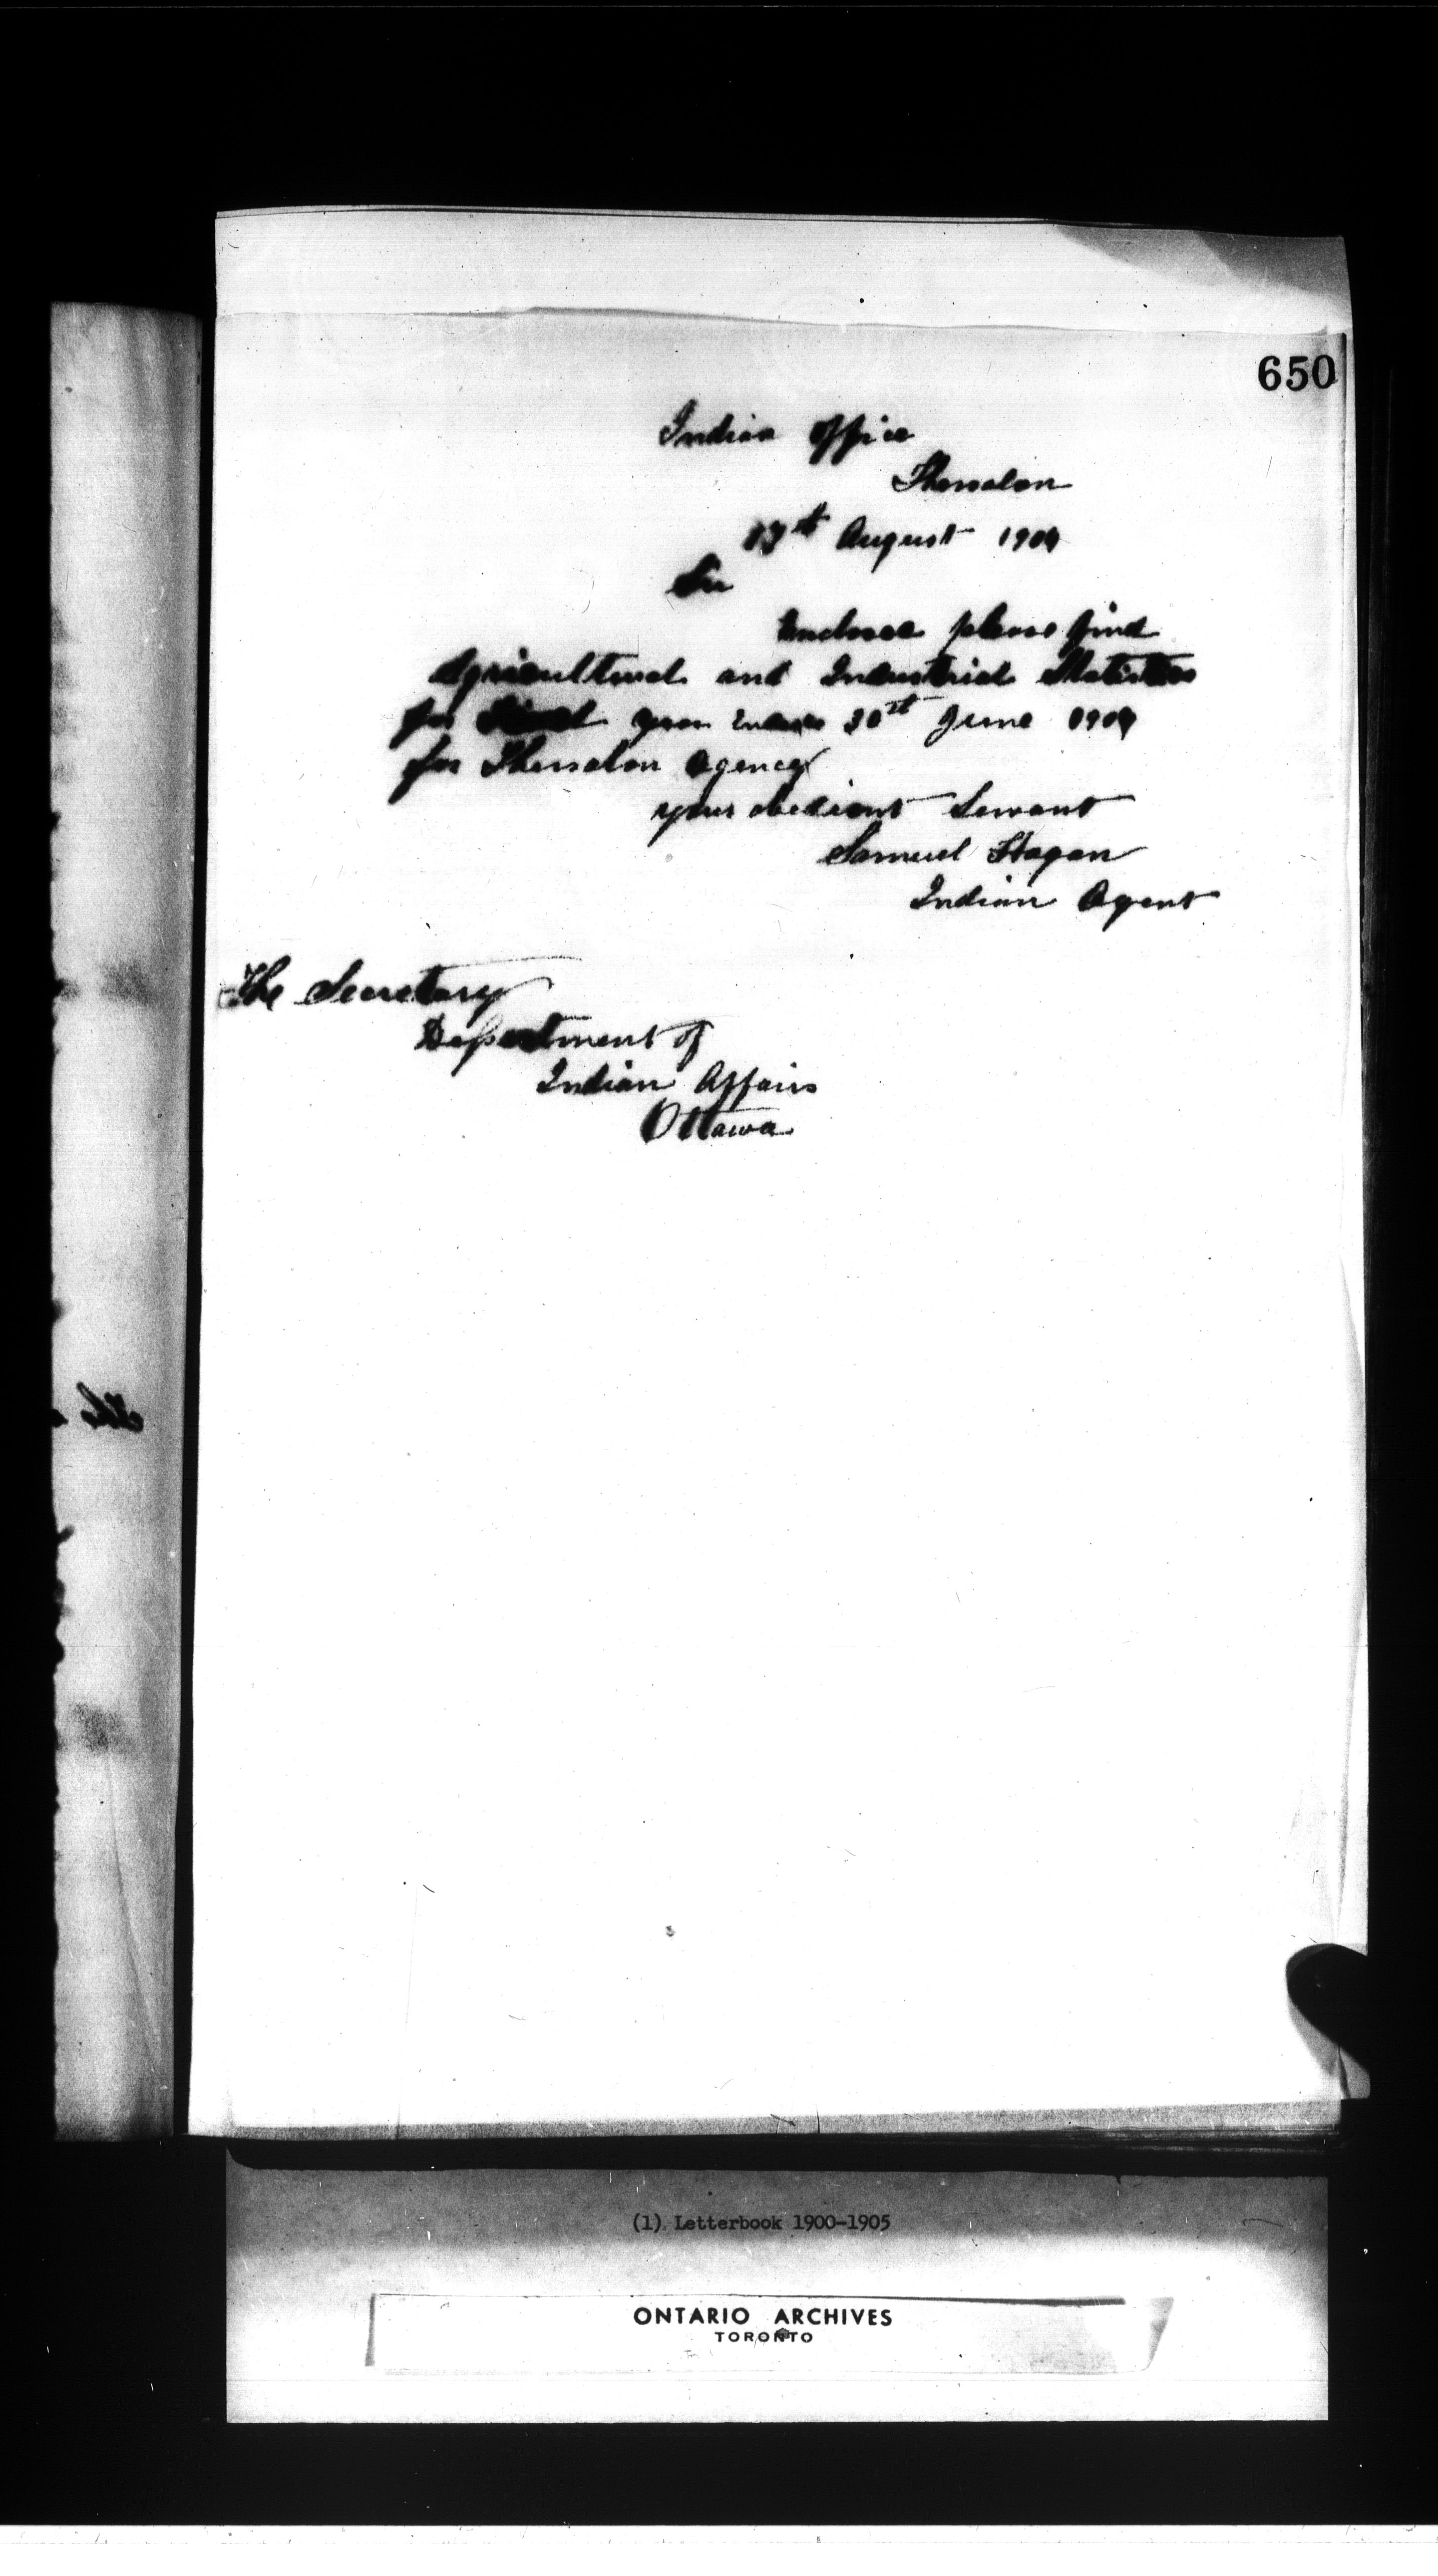 650
Indian Office
Thessalon
August 1904
Sir
Enclosed please find
Agricultural and Industrial Statistics
for Fiscal year Ended 30st June 1904
for Thessalon Agency
your obedient Servant
Samuel Hagan
Indian Agent
The Secretary
Department of
Indian Affairs
Ottawa
The
(1) Letterbook 1900-1905
ONTARIO ARCHIVES
TORONTO